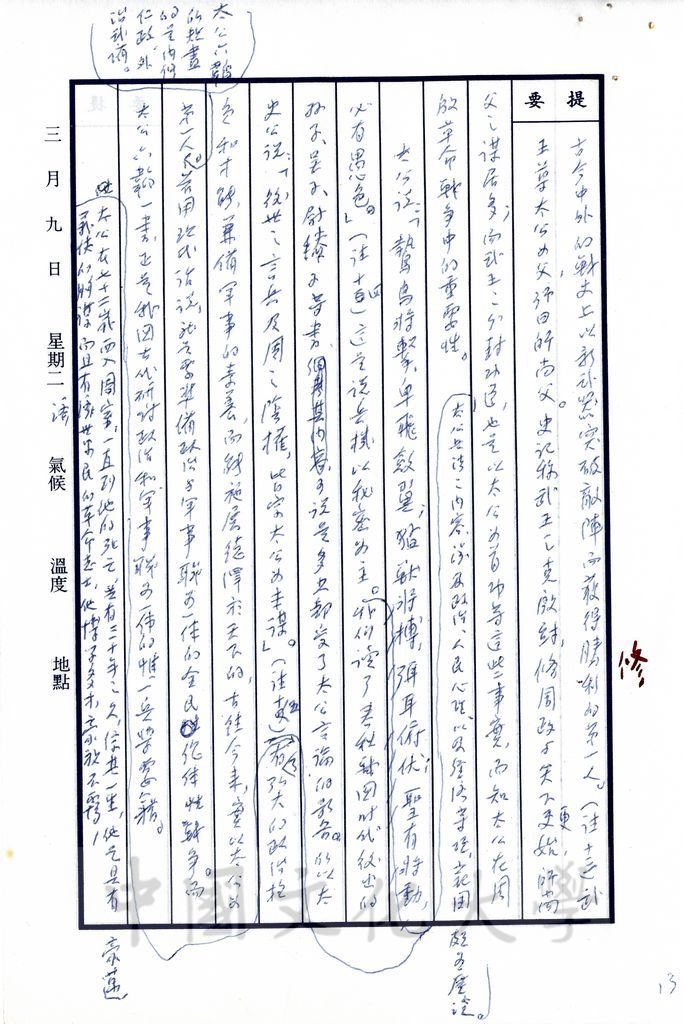 提要
三月九日 星期二 氣候 溫度 地點
古今中外的戰史上以新武器突破敵陣而獲得勝利的第一人。（註十三）武
王尊太公為父師曰師尚父。史記稱武王之克殷紂，修周政與天下更始，師尚
父之謀居多；而武王之分封功臣，也是以太公為首功等這些事實，而知太公在周
殷革命戰爭中的重要性。
太公兵法之內容涉及政治、人民心理、以及經濟等項，範圍
頗為廣泛。
太公說：「鷙鳥將擊，卑飛斂翼；猛獸將搏，弭耳俯伏；聖人將動，
必有愚色。」（註十四）這是說兵機以秘密為主。我們讀了春秋戰國時代後出的
孫子、吳子、尉繚子等書，可說是多少都受了太公言論的影響。所以太
史公說：「後世之言兵及周之陰權，皆宗太公為本謀。」（註十五）有強大的政治抱
負和才能，兼備軍事的素養，而能施展德澤於天下的，古往今來，實以太公為
第一人。若用現代話說，就是要準備政治與軍事聯為一体的全民總体性戰爭。而
太公六韜一書，正是我國古代研討政治和軍事聯為一体的惟一兵學要籍。
太公在七十二歲西入周室，一直到他的死亡，並有三十年之久，綜其一生，他是具有豪邁
義俠的胸襟，而且有濟世安民的革命志士，他博學多才，
太公六韜
的規畫
的是內修
仁政，外
治武備。
修
13
中國文化大學